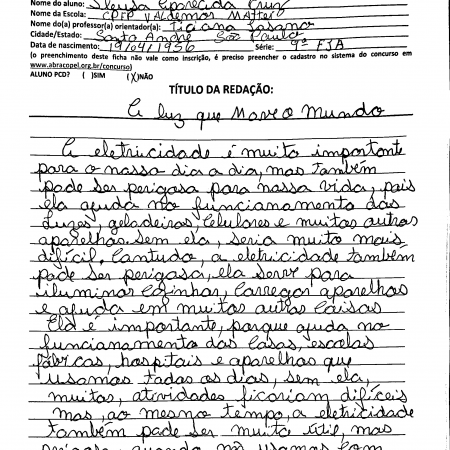 Nome do aluno: Neusa Aparecida Cruz
Nome da Escola: CPFP VALdEMAR MATTEI
Nome do(a) professor(a) orientador(a): Ticiana Lasano
Cidade/Estado: Santo André São Paulo
Data de nascimento: 19/04/1956 Série: 9º FJA
(o preenchimento deste ficha não vale como inscrição, é preciso preencher o cadastro no sistema do concurso em
www.abracopel.org.br/concurso)
ALUNO PCD? ( )SIM (X)NÃO
TÍTULO DA REDAÇÃO:
A luz que Move o Mundo
A eletricidade é muito importante
para o nosso dia a dia, mas também
pode ser perigosa para nossa vida, pois
ela ajuda no funcionamento das
Luzes, geladeiras, Celulares e muitos outros
aparelhos. Sem ela, seria muito mais
difícil. Contudo, a eletricidade também
pode ser perigosa, ela serve para
iluminar Cozinhar, Carregar aparelhos
e ajuda em muitas outras Coisas
Ela é importante, porque ajuda no
funcionamento das Casas, escolas
fábricas, hospitais e aparelhos que
usamos todos os dias, sem ela,
muitas, atividades ficariam difíceis
mas, ao mesmo tempo, a eletricidade
também pode ser muito útil, mas
quando não usamos com